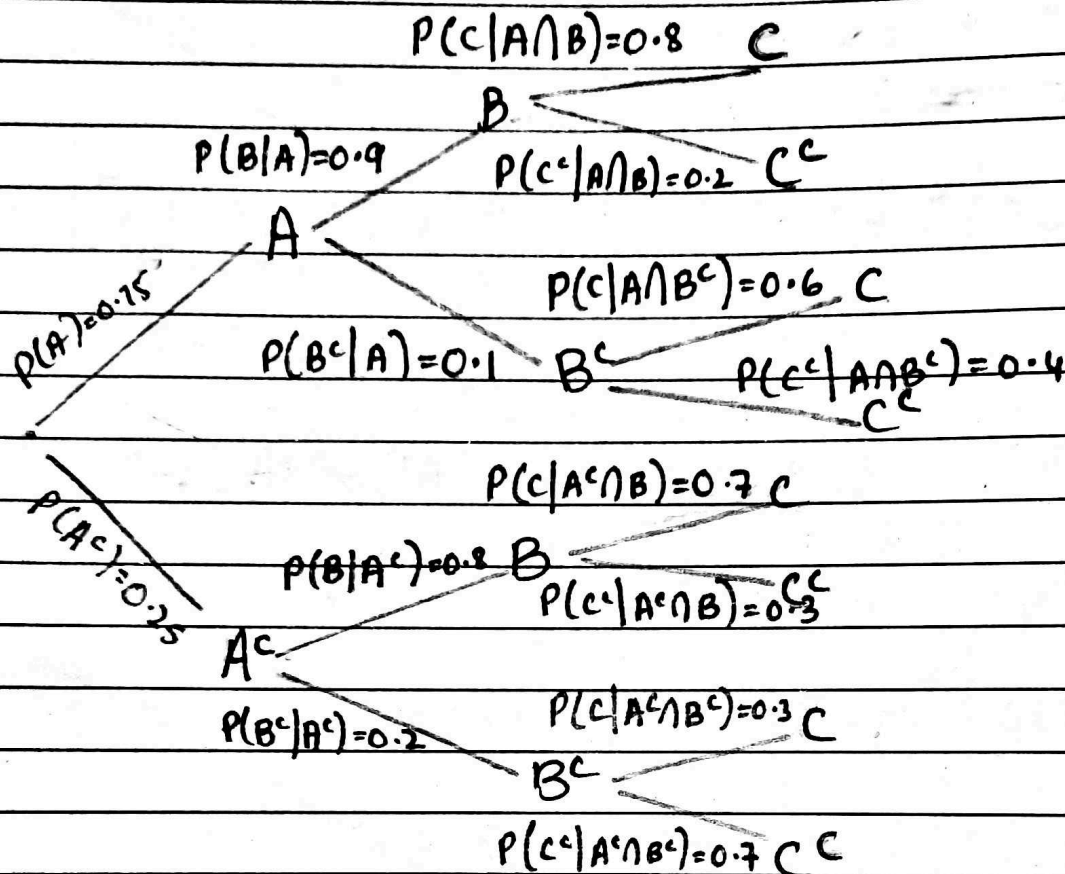 P(C|A∩B)=0.8 C
B
P(B|A)=0.9
P(Cᶜ|A∩B)=0.2 Cᶜ
A
P(A)=0.75
P(C|A∩Bᶜ)=0.6 C
P(Bᶜ|A)=0.1 Bᶜ
P(Cᶜ|A∩Bᶜ)=0.4
Cᶜ
P(Aᶜ)=0.25
P(C|Aᶜ∩B)=0.7 C
P(B|Aᶜ)=0.8 B
Cᶜ
P(Cᶜ|Aᶜ∩B)=0.3
Aᶜ
P(C|Aᶜ∩Bᶜ)=0.3 C
P(Bᶜ|Aᶜ)=0.2
Bᶜ
P(Cᶜ|Aᶜ∩Bᶜ)=0.7 Cᶜ